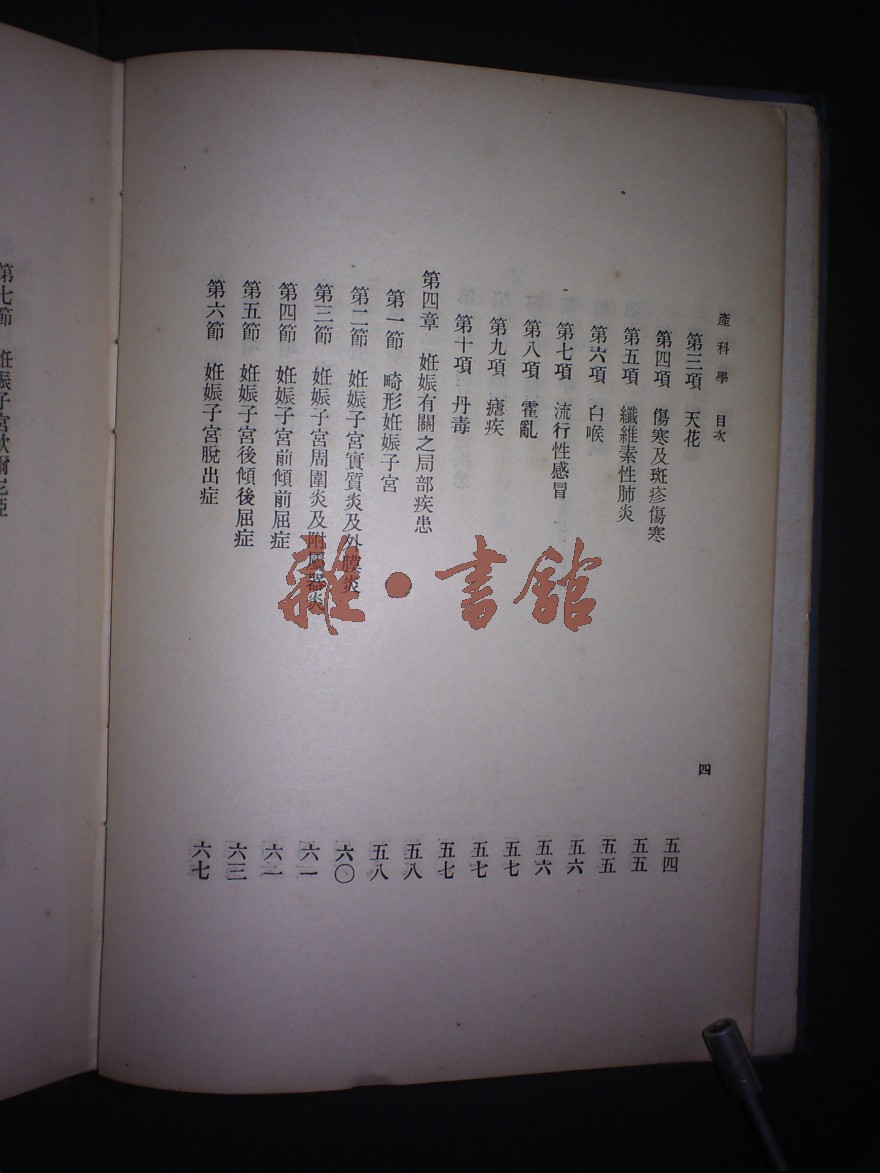 產科學　目次
第三項　天花　五四
第四項　傷寒及斑疹傷寒　五五
第五項　纖維素性肺炎　五五
第六項　白喉　五六
第七項　流行性感冒　五六
第八項　霍亂　五七
第九項　瘧疾　五七
第十項　丹毒　五七
第四章　妊娠有關之局部疾患　五八
第一節　畸形妊娠子宮　五八
第二節　妊娠子宮實質炎及外膜炎　六〇
第三節　妊娠子宮周圍炎及附屬器炎　六一
第四節　妊娠子宮前傾前屈症　六一
第五節　妊娠子宮後傾後屈症　六三
第六節　妊娠子宮脫出症　六七
四
第七節　妊娠子宮歇爾尼亞
雜·書館